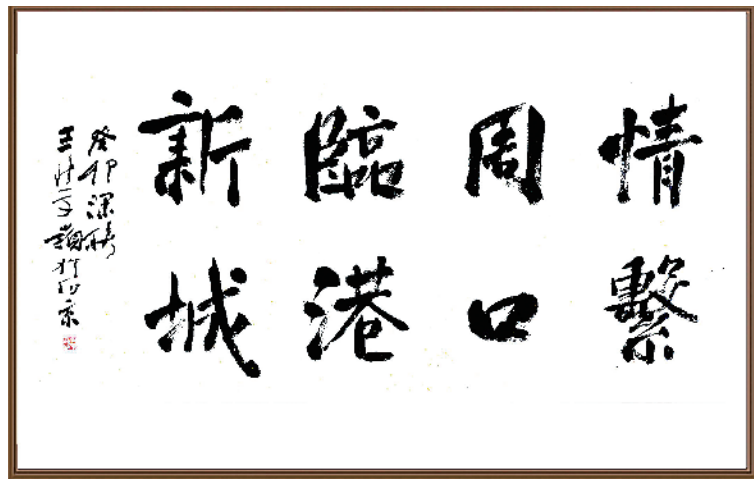 情繫
周口
臨港
新城
癸卯深秋